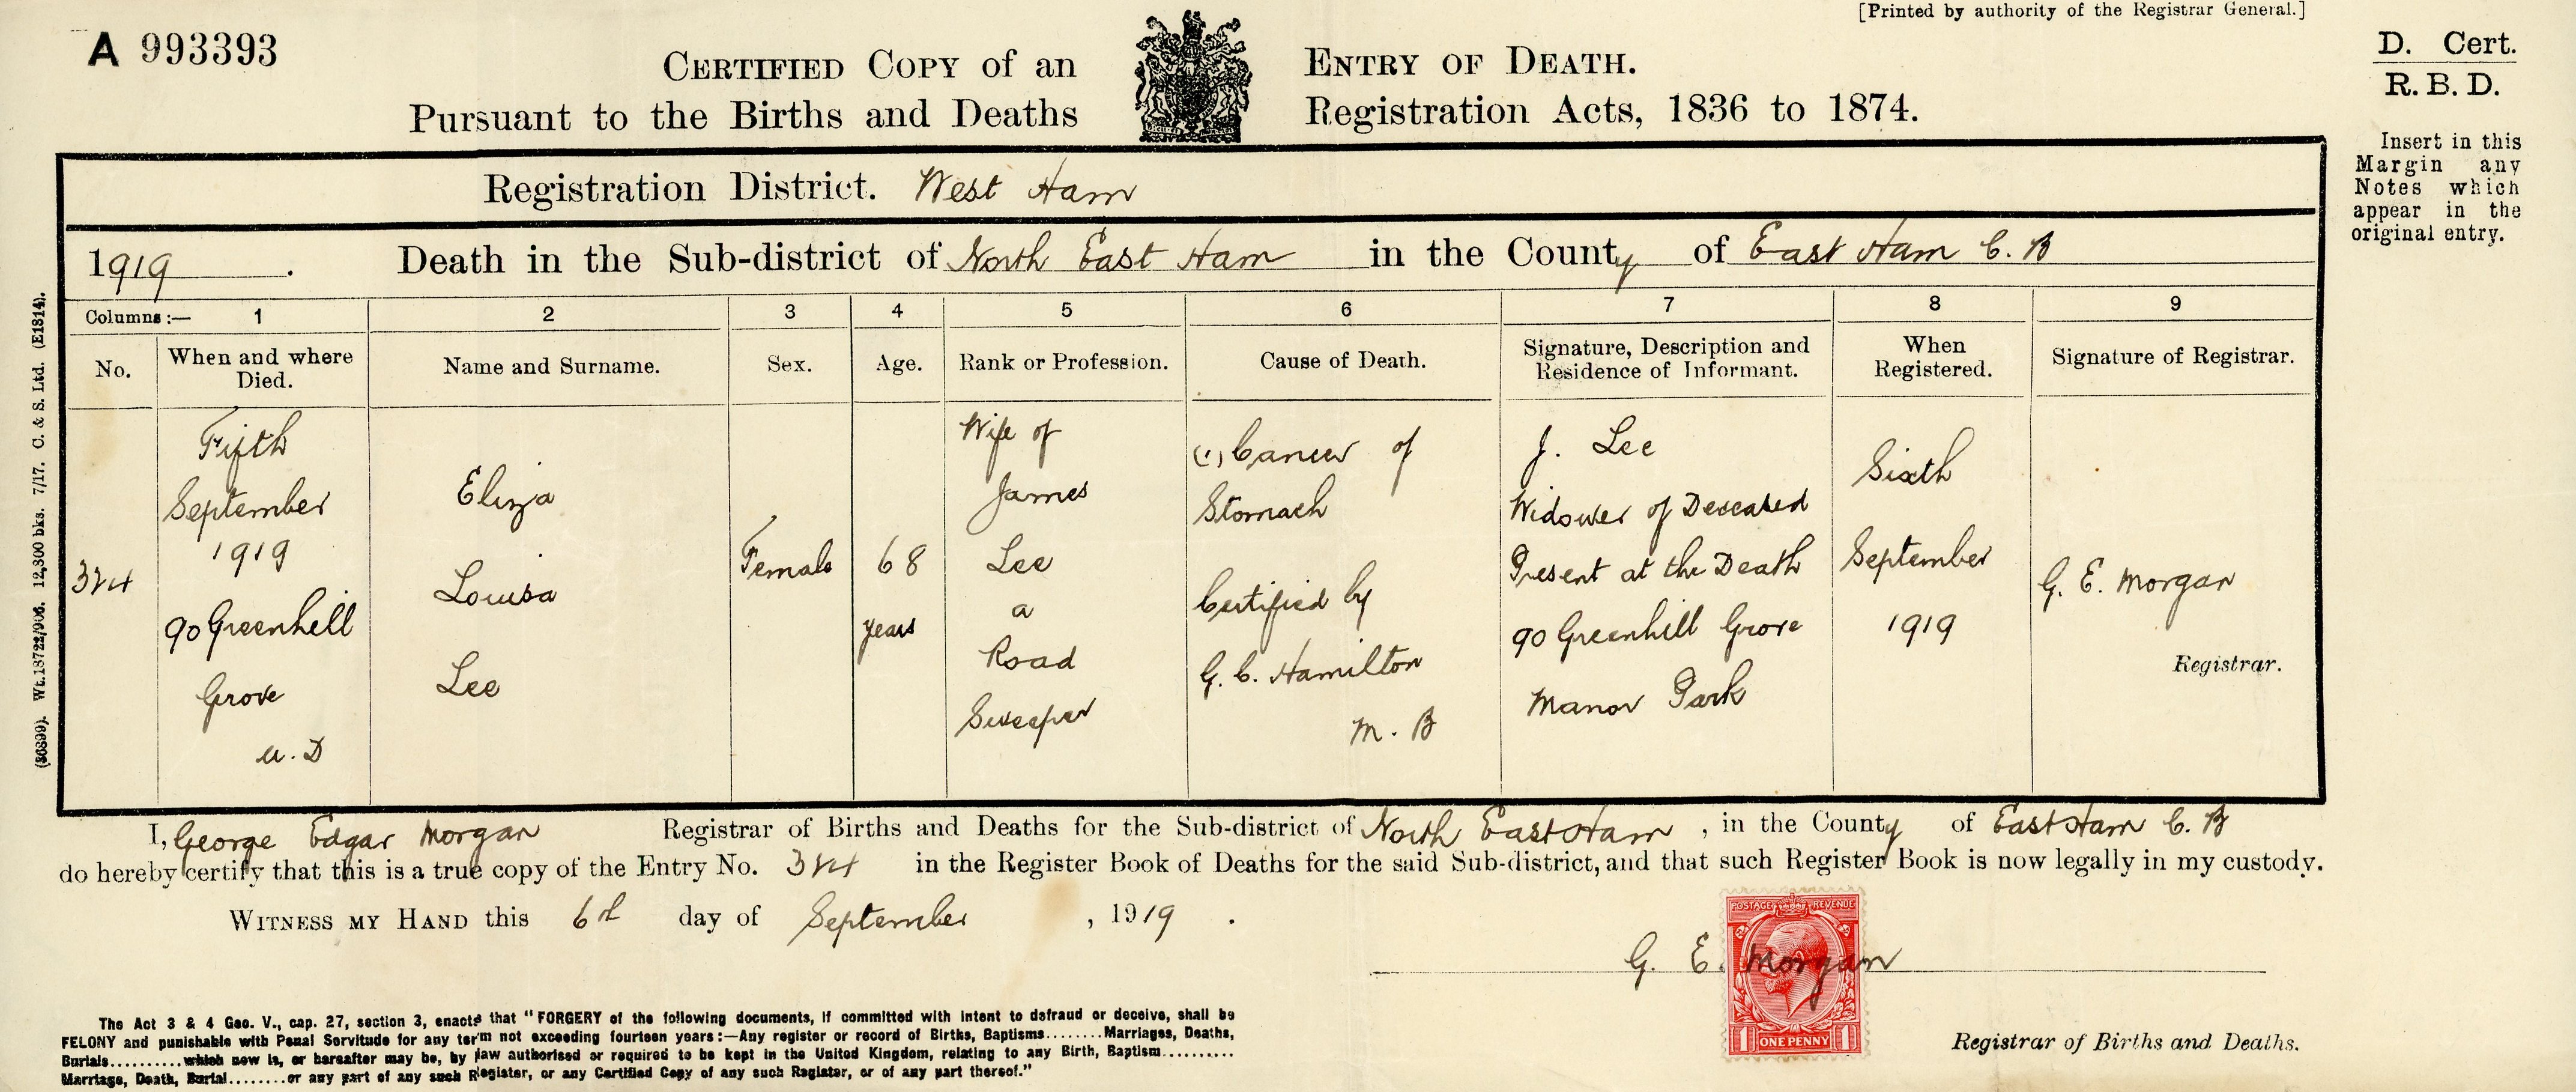 [Printed by authority of the Registrar General.]
A 993393
CERTIFIED COPY of an ENTRY OF DEATH.
Pursuant to the Births and Deaths Registration Acts, 1836 to 1874.
D. Cert.
R. B. D.
Insert in this
Margin any
Notes which
appear in the
original entry.
Registration District. West Ham
1919. Death in the Sub-district of North East Ham in the County of East Ham C. B
Columns:— 1 2 3 4 5 6 7 8 9
No.
When and where
Died.
Name and Surname.
Sex.
Age.
Rank or Profession.
Cause of Death.
Signature, Description and
Residence of Informant.
When
Registered.
Signature of Registrar.
324
Fifth
September
1919
90 Greenhill
Grove
U. D
Eliza
Louisa
Lee
Female
68
years
Wife of
James
Lee
a
Road
Sweeper
(1) Cancer of
Stomach
Certified by
G. C. Hamilton
M. B
J. Lee
Widower of Deceased
Present at the Death
90 Greenhill Grove
Manor Park
Sixth
September
1919
G. E. Morgan
Registrar.
I, George Edgar Morgan Registrar of Births and Deaths for the Sub-district of North East Ham, in the County of East Ham C. B
do hereby certify that this is a true copy of the Entry No. 324 in the Register Book of Deaths for the said Sub-district, and that such Register Book is now legally in my custody.
WITNESS MY HAND this 6th day of September, 1919.
POSTAGE REVENUE
G. E. Morgan
1 ONE PENNY 1
Registrar of Births and Deaths.
The Act 3 & 4 Geo. V., cap. 27, section 3, enacts that "FORGERY of the following documents, if committed with intent to defraud or deceive, shall be
FELONY and punishable with Penal Servitude for any term not exceeding fourteen years:—Any register or record of Births, Baptisms........Marriages, Deaths,
Burials..........which now is, or hereafter may be, by law authorised or required to be kept in the United Kingdom, relating to any Birth, Baptism..........
Marriage, Death, Burial........or any part of any such Register, or any Certified Copy of any such Register, or of any part thereof."
(36899). Wt.18722/906. 12,300 bks. 7/17. C. & S. Ltd. (E1814).